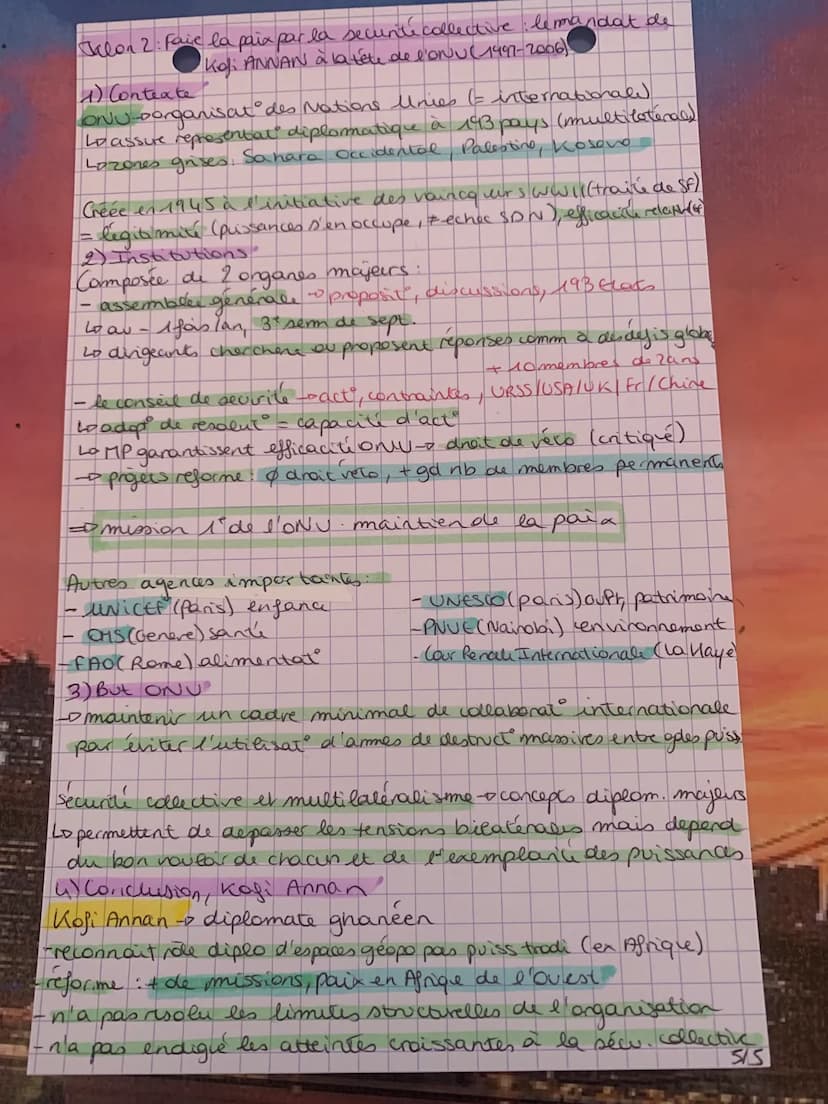 Jalon 2 : Faire la paix par la sécurité collective : le mandat de
Kofi ANNAN à la tête de l'ONU (1997-2006)
1) Contexte
ONU → organisat° des Nations Unies (= internationale)
↳ assure représentat° diplomatique à 193 pays (multilatérale)
↳ zones grises : Sahara Occidental, Palestine, Kosovo
Créée en 1945 à l'initiative des vainqueurs WWII (traité de SF)
= légitimité (puissances s'en occupe, ≠ échec SDN), efficacité relative
2) Institutions
Composée de 2 organes majeurs :
- assemblée générale → proposit°, discussions, 193 Etats
↳ au - 1 fois/an, 3e sem de sept.
↳ dirigeants cherchent ou proposent réponses comm à des défis globx
+ 10 membres de 2 ans
- le conseil de sécurité → act°, contraintes, URSS/USA/UK/Fr/Chine
↳ adopt° de résolut° = capacité d'act°
↳ MP garantissent efficacité ONU → droit de véto (critiqué)
→ projets réforme : ∅ droit véto, + gd nb de membres permanents
⇒ mission 1e de l'ONU : maintien de la paix
Autres agences importantes :
- UNICEF (Paris) enfance - UNESCO (Paris) cult, patrimoine
- OMS (Genève) santé - PNUE (Nairobi) environnement
- FAO (Rome) alimentat° - Cour Pénale Internationale (La Haye)
3) But ONU
→ maintenir un cadre minimal de collaborat° internationale
par éviter l'utilisat° d'armes de destruct° massives entre gdes puiss
Sécurité collective et multilatéralisme → concepts diplom. majeurs
↳ permettent de dépasser les tensions bilatérales mais dépend
du bon vouloir de chacun et de l'exemplarité des puissances
4) Conclusion, Kofi Annan
Kofi Annan → diplomate ghanéen
- reconnait rôle diplo d'espaces géopo pas puiss tradi (en Afrique)
- réforme : + de missions, paix en Afrique de l'ouest
- n'a pas résolu les limites structurelles de l'organisation
- n'a pas endigué les atteintes croissantes à la sécu. collective
5/5